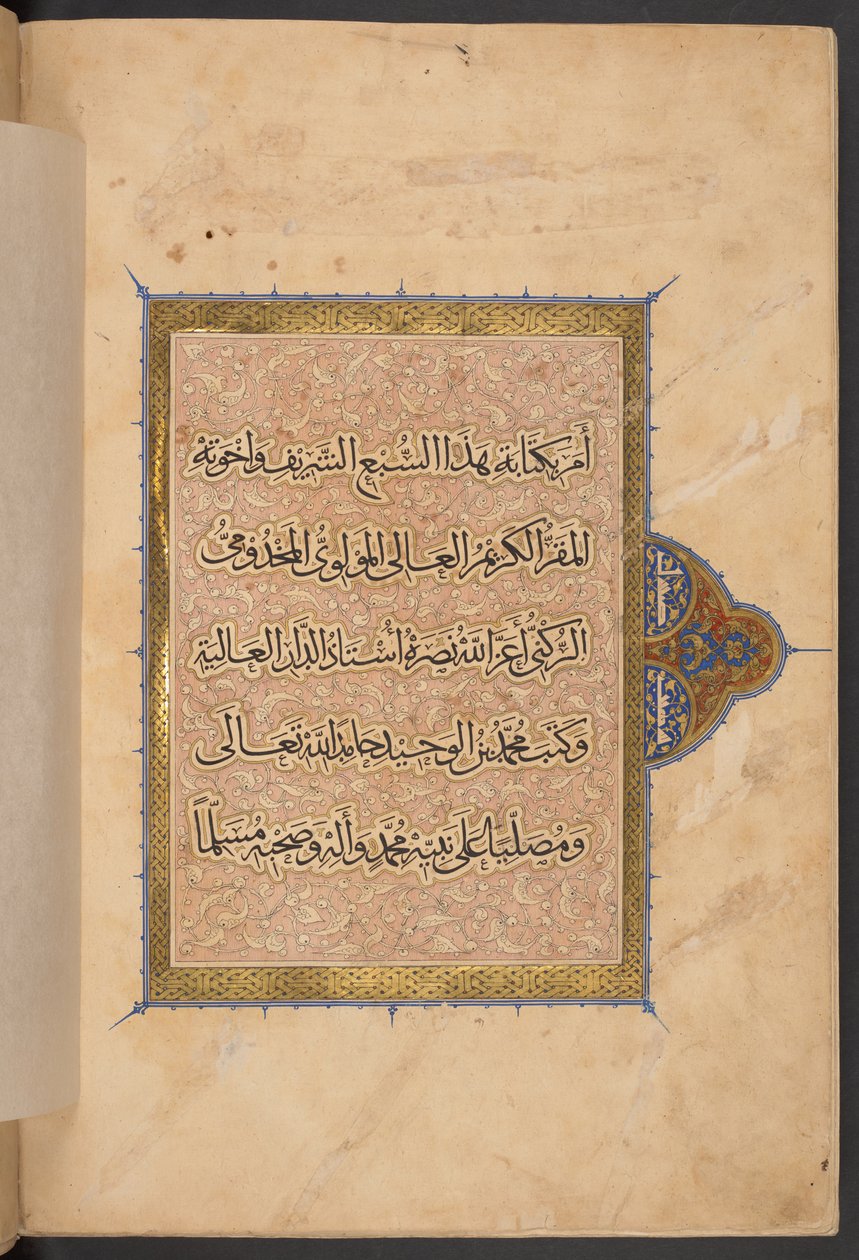 أَمَرَ بِكِتَابَةِ هَذَا السُّبُعِ الشَّرِيفِ وَإِخْوَتِهِ
المَقَرُّ الكَرِيْمُ العَالِى المَوْلَوِىُّ المَخْدُومِىُّ
الرُّكْنِىُّ أَعَزَّ اللّٰهُ نُصْرَهُ أُسْتَاذُ الدَّارِ العَالِيَةِ
وَكَتَبَ مُحَمَّدُ بْنُ الوَحِيدِ حَامِدًا للّٰهِ تَعَالَى
وَمُصَلِّيًا عَلَى نَبِيِّهِ مُحَمَّدٍ وَأَلِهِ وَصَحْبِهِ وَمُسَلِّمًا